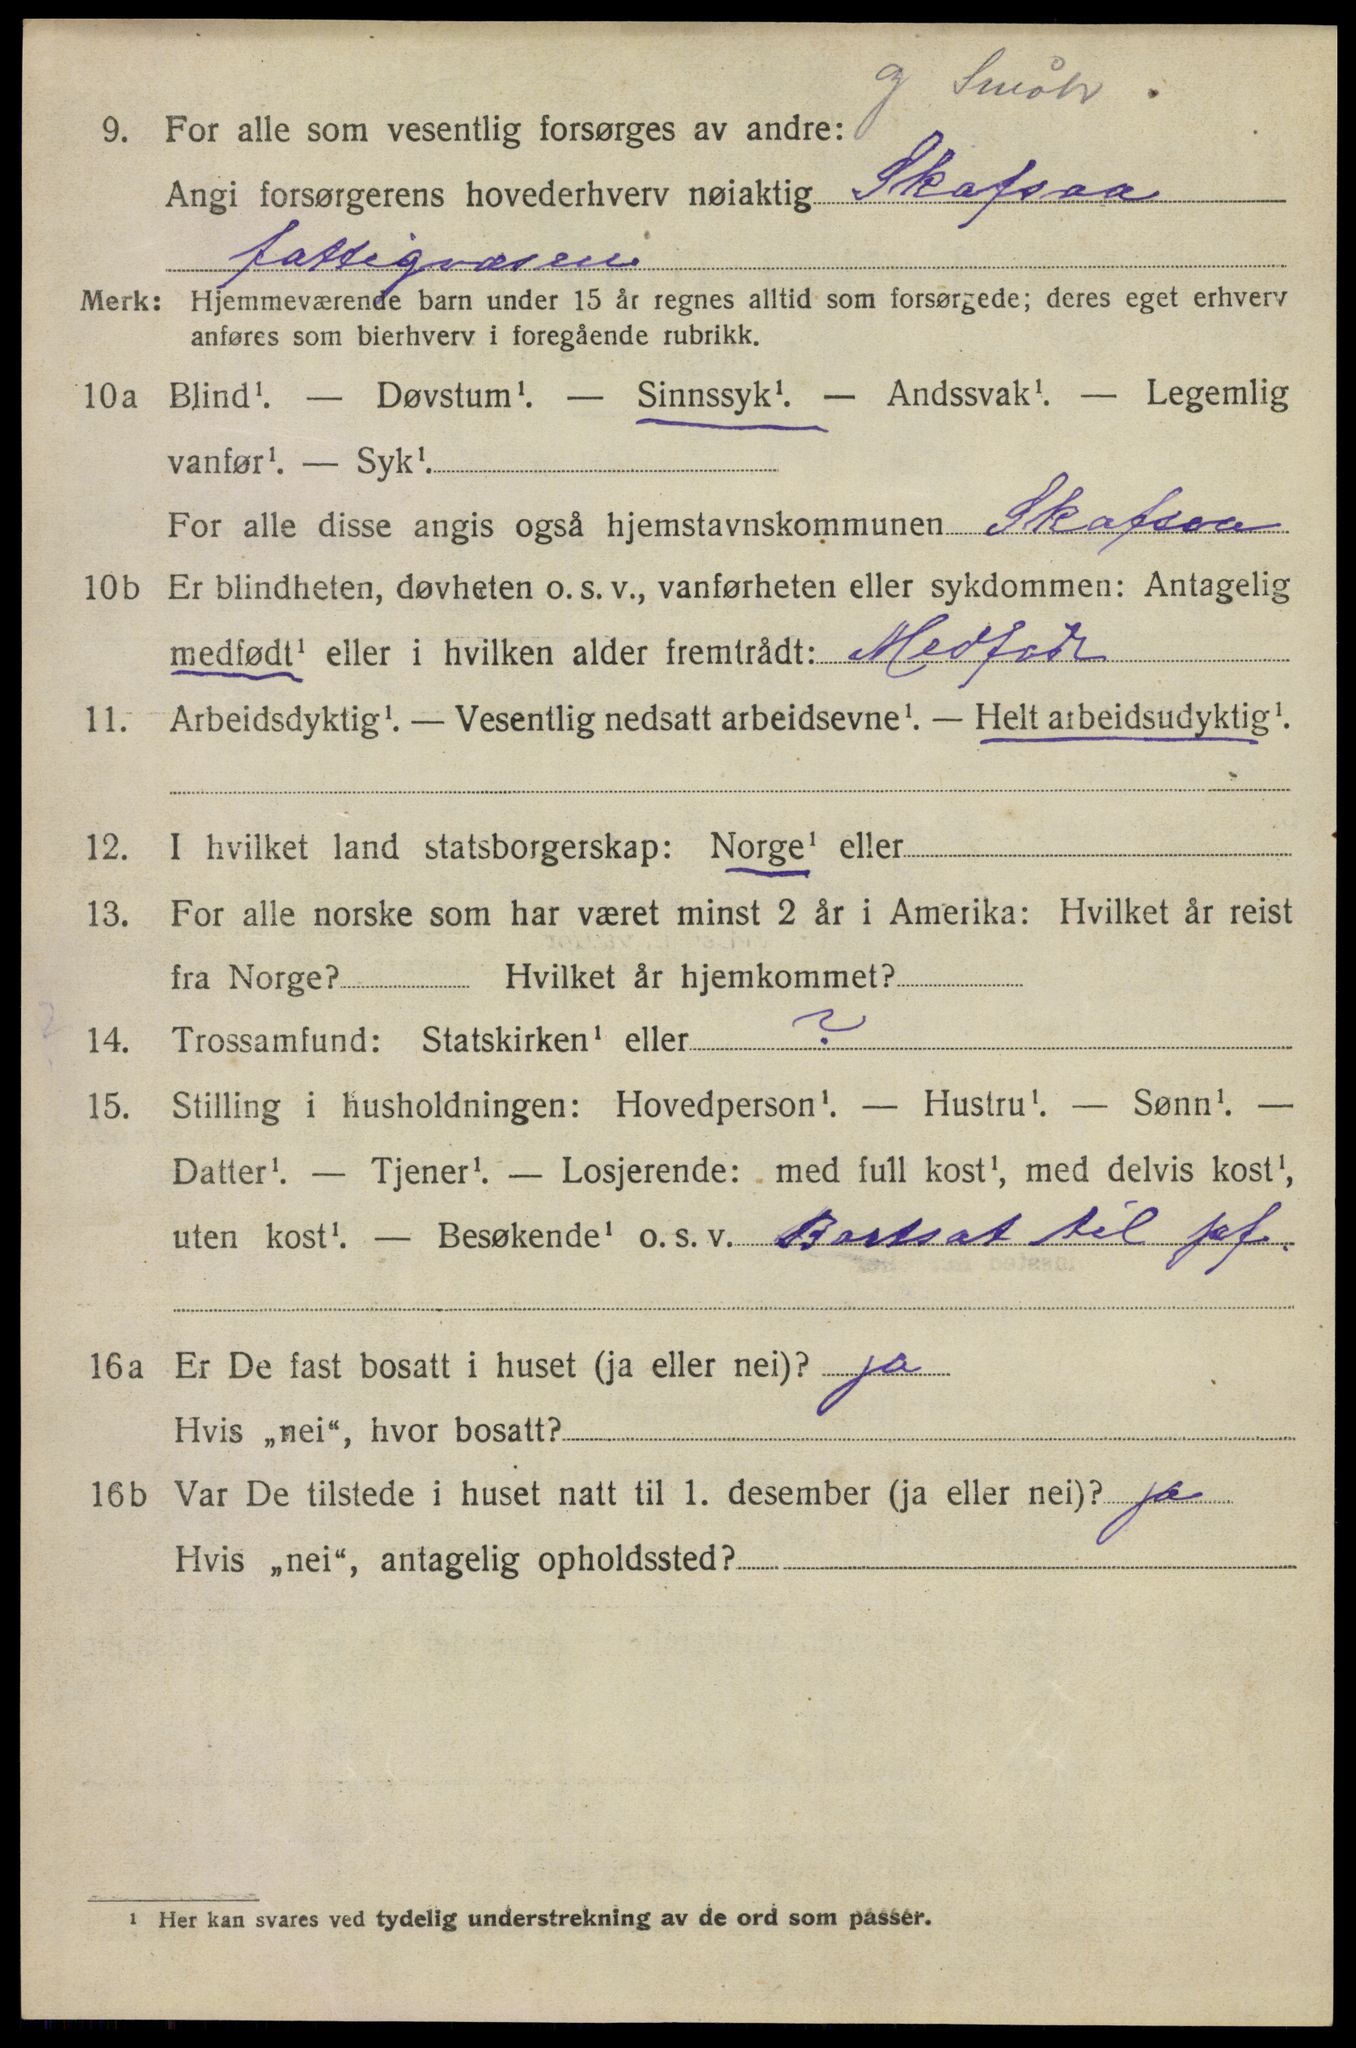 g Smöbr.
9. For alle som vesentlig forsørges av andre:
Angi forsørgerens hovederhverv nøiaktig Skafsaa
fattigvæsen
Merk: Hjemmeværende barn under 15 år regnes alltid som forsørgede; deres eget erhverv
anføres som bierhverv i foregående rubrikk.
10a Blind¹. — Døvstum¹. — Sinnssyk¹. — Andssvak¹. — Legemlig
vanfør¹. — Syk¹.
For alle disse angis også hjemstavnskommunen Skafsaa
10b Er blindheten, døvheten o. s. v., vanførheten eller sykdommen: Antagelig
medfødt¹ eller i hvilken alder fremtrådt: Medfødt
11. Arbeidsdyktig¹. — Vesentlig nedsatt arbeidsevne¹. — Helt arbeidsudyktig¹.
12. I hvilket land statsborgerskap: Norge¹ eller
13. For alle norske som har været minst 2 år i Amerika: Hvilket år reist
fra Norge? Hvilket år hjemkommet?
14. Trossamfund: Statskirken¹ eller ?
15. Stilling i husholdningen: Hovedperson¹. — Hustru¹. — Sønn¹. —
Datter¹. — Tjener¹. — Losjerende: med full kost¹, med delvis kost¹,
uten kost¹. — Besøkende¹ o. s. v. Bortsat til
16a Er De fast bosatt i huset (ja eller nei)? ja
Hvis „nei“, hvor bosatt?
16b Var De tilstede i huset natt til 1. desember (ja eller nei)? ja
Hvis „nei“, antagelig opholdssted?
¹ Her kan svares ved tydelig understrekning av de ord som passer.